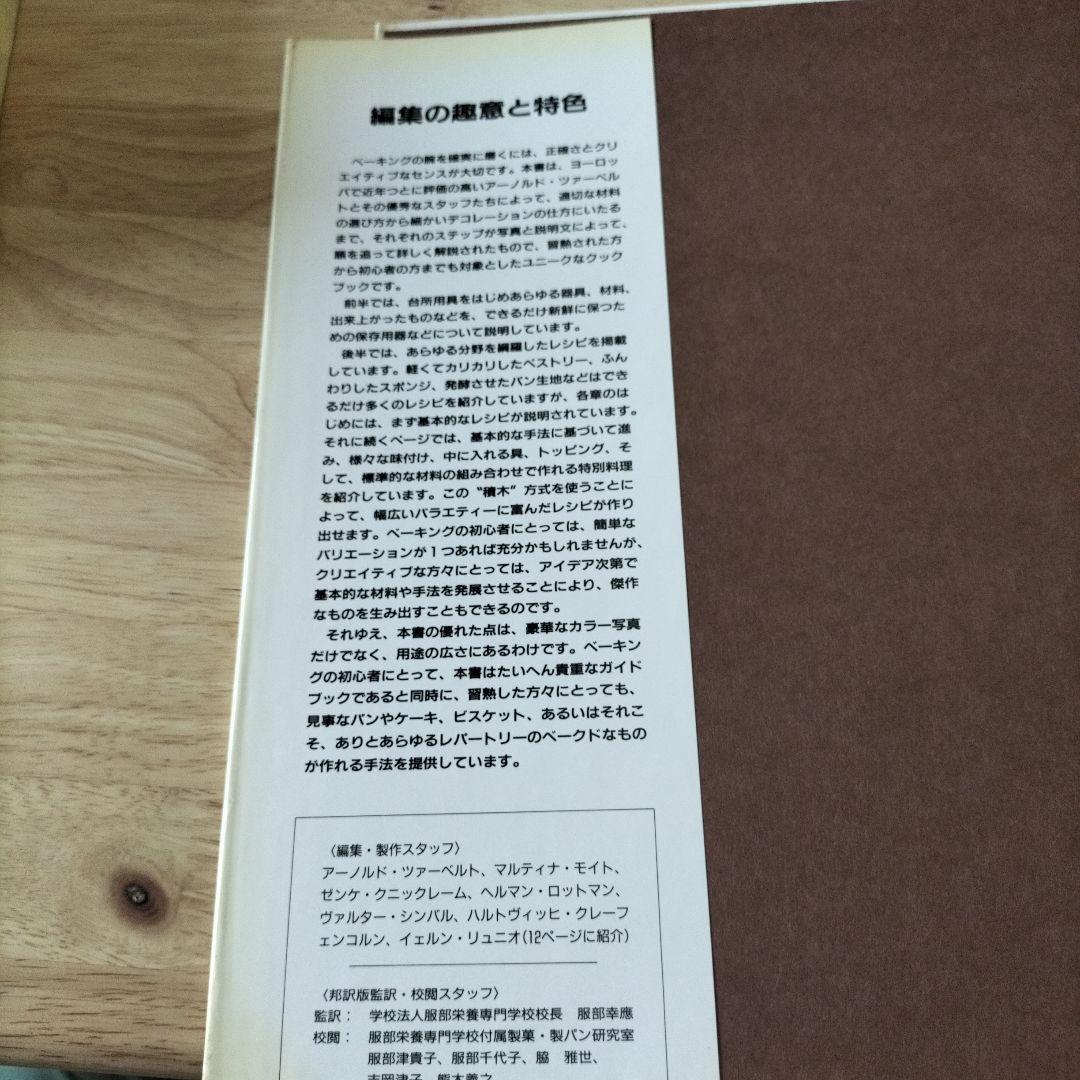 編集の趣意と特色
ベーキングの腕を確実に磨くには、正確さとクリ
エイティブなセンスが大切です。本書は、ヨーロッ
パで近年つとに評価の高いアーノルド・ツァーベル
トとその優秀なスタッフたちによって、適切な材料
の選び方から細かいデコレーションの仕方にいたる
まで、それぞれのステップが写真と説明文によって、
順を追って詳しく解説されたもので、習熟された方
から初心者の方までも対象としたユニークなクック
ブックです。
前半では、台所用具をはじめあらゆる器具、材料、
出来上がったものなどを、できるだけ新鮮に保つた
めの保存用器などについて説明しています。
後半では、あらゆる分野を網羅したレシピを掲載
しています。軽くてカリカリしたペストリー、ふん
わりしたスポンジ、発酵させたパン生地などはでき
るだけ多くのレシピを紹介していますが、各章のは
じめには、まず基本的なレシピが説明されています。
それに続くページでは、基本的な手法に基づいて進
み、様々な味付け、中に入れる具、トッピング、そ
して、標準的な材料の組み合わせで作れる特別料理
を紹介しています。この“積木”方式を使うことに
よって、幅広いバラエティーに富んだレシピが作り
出せます。ベーキングの初心者にとっては、簡単な
バリエーションが1つあれば充分かもしれませんが、
クリエイティブな方々にとっては、アイデア次第で
基本的な材料や手法を発展させることにより、傑作
なものを生み出すこともできるのです。
それゆえ、本書の優れた点は、豪華なカラー写真
だけでなく、用途の広さにあるわけです。ベーキン
グの初心者にとって、本書はたいへん貴重なガイド
ブックであると同時に、習熟した方々にとっても、
見事なパンやケーキ、ビスケット、あるいはそれこ
そ、ありとあらゆるレパートリーのベークドなもの
が作れる手法を提供しています。
〈編集・製作スタッフ〉
アーノルド・ツァーベルト、マルティナ・モイト、
ゼンケ・クニックレーム、ヘルマン・ロットマン、
ヴァルター・シンバル、ハルトヴィッヒ・クレーフ
ェンコルン、イェルン・リュニオ(12ページに紹介)
〈邦訳版監訳・校閲スタッフ〉
監訳： 学校法人服部栄養専門学校校長 服部幸應
校閲： 服部栄養専門学校付属製菓・製パン研究室
服部津貴子、服部千代子、脇 雅世、